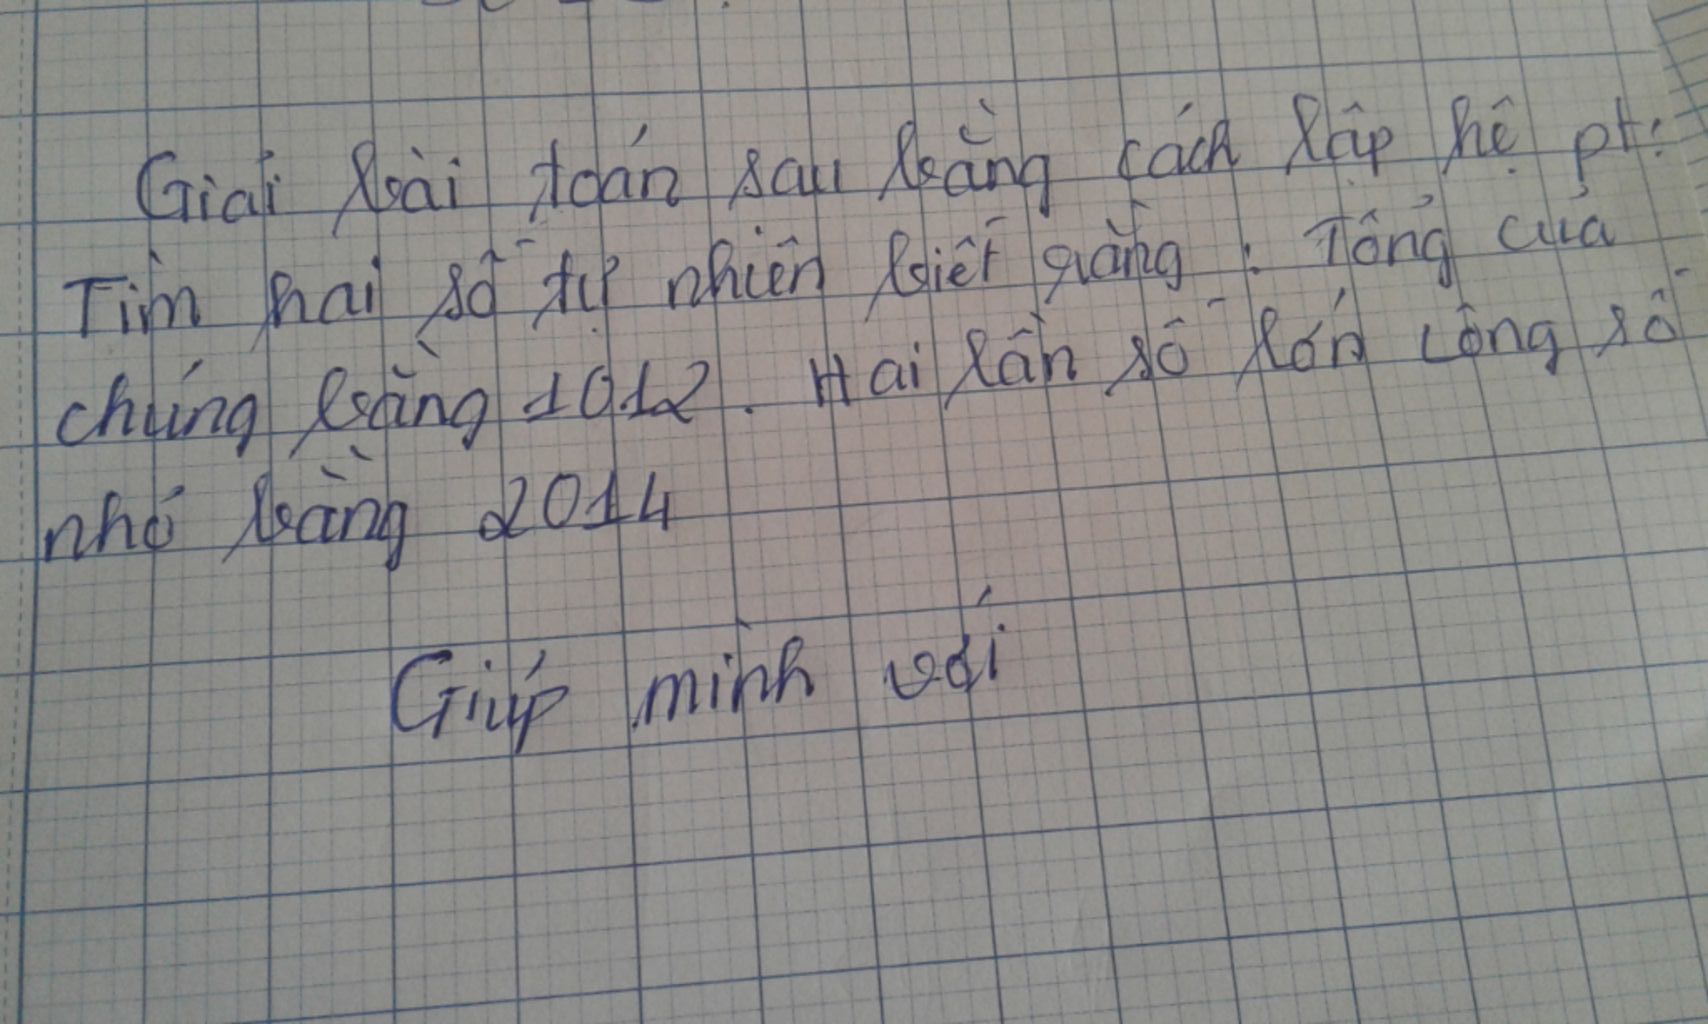 Giải bài toán sau bằng cách lập hệ pt:
Tìm hai số tự nhiên biết rằng : Tổng của
chúng bằng 1012. Hai lần số lớn cộng số
nhỏ bằng 2014
Giúp mình với